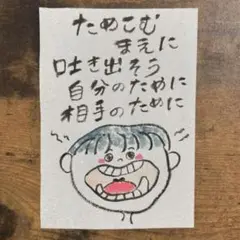 ためこむ
まえに
吐き出そう
自分のために
相手のために